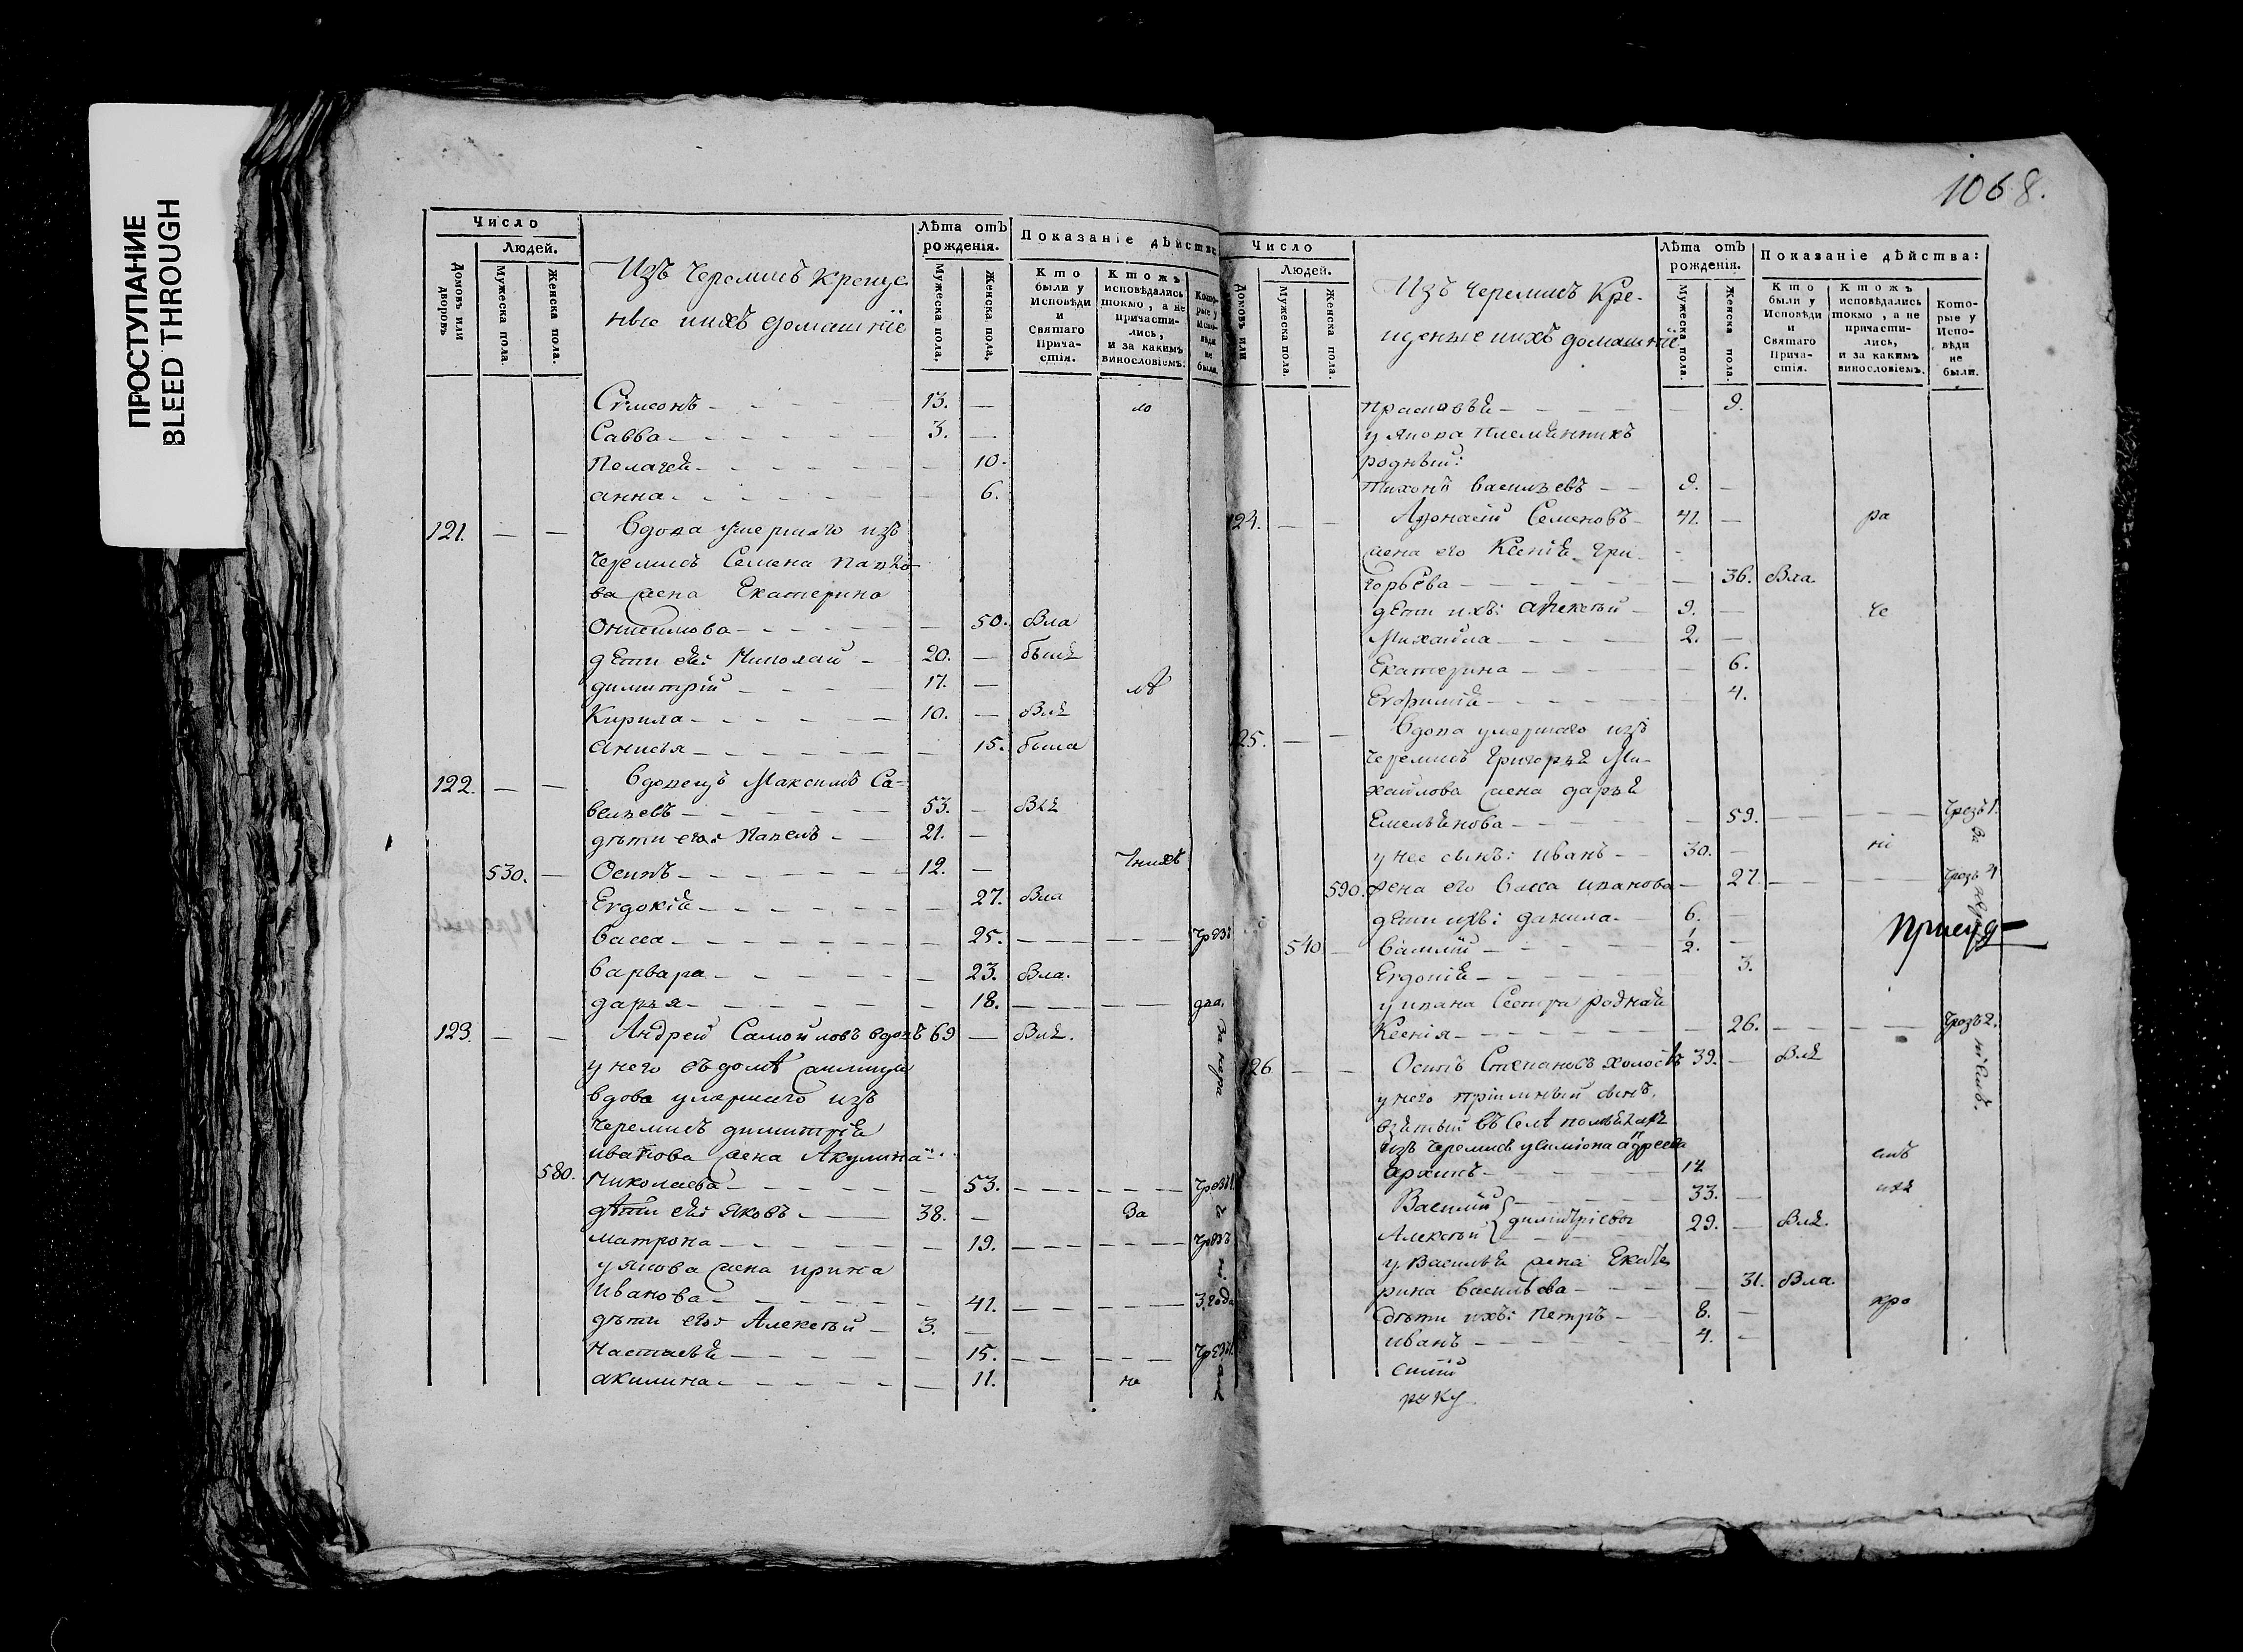 ПРОСТУПАНИЕ
BLEED THROUGH
1068.
Число
Людей.
Домовъ или дворовъ
Мужеска пола.
Женска пола.
Изъ Черемисъ креще
ные ихъ домашніе
Лѣта отъ рожденія.
Мужеска пола.
Женска пола.
Показаніе дѣйства
Кто были у Исповѣди и Святаго Причастія.
Ктожъ исповѣдались токмо, а не причастились, и за какимъ винословіемъ.
Которые у Исповѣди не были.
Сѵмеонъ 13. —
Савва 3. —
— 10.
анна — 6.
121. — — Вдова умершаго изъ
Черемисъ Семена
ва жена Екатерина
Онисимова — 50. Вла
дѣти еѣ: Николай 20. — былъ
димитрій 17. —
Кирила 10. —
Анисья — 15. была
122. — — Вдовецъ Максимъ Са-
вельевъ 53. —
дѣти его: Павелъ 21. —
530. — Осипъ 12. —
Евдокіѣ — 27. Вла
васса — 25. — — —
варвара — 23. Вла.
дарья — 18. — — — два.
123. — — Андрей Самойловъ вдовъ 69 —
у него въ домѣ
вдова умершаго изъ
Черемисъ димитріѣ
иванова жена Акулина
580. Николаева — 53. — — —
дѣти еѣ: Яковъ 38. — За
матрона — 19. — — —
у Якова жена ирина
Иванова — 41. — — — 3. года
дѣти его: Алексѣй 3. —
Настасьѣ — 15. — — —
акилина — 11. не
Число
Людей.
Домовъ или
Мужеска пола.
Женска пола.
Изъ Черемисъ Кре-
щеные ихъ домашніе
Лѣта отъ рожденія.
Мужеска пола.
Женска пола.
Показаніе дѣйства:
Кто были у Исповѣди и Святаго Причастія.
Ктожъ исповѣдались токмо, а не причастились, и за какимъ винословіемъ.
Которые у Исповѣди не были.
прасковьѣ — 9.
у Якова племѣнникъ
родный:
Тихонъ васильевъ 9. —
124. — — Афонасій Семеновъ 41. — ра
жена его Ксеніѣ Гри-
горьева — 36. Вла.
дѣти ихъ: Алексѣй 9. — че
Михайла 2. —
Екатерина — 6.
Евфиміѣ — 4.
125. — — Вдова умершаго изъ
Черемисъ Григорьѣ Ми-
хайлова жена дарьѣ
Емельѣнова — 59. — — — Чрезъ 1.
у нее сынъ: иванъ 30. — ні
590. жена его васса иванова — 27. — — — Чрезъ 4
дѣти ихъ: данила 6. —
540 — василій 2. —
Евдокіѣ 3.
у ивана сестра роднаѣ
Ксенія — 26. — — — Чрезъ 2.
126 — — Осипъ Степановъ холостъ 39. —
у него пріимный сынъ,
взѣтый въ селѣ
изъ Черемисъ у Симіона андреева
архипъ 14. —
Василій } 33. —
Алексѣй } димитріевы 29. —
у Васильѣ жена Екате
рина васильева — 31. Вла.
дѣти ихъ: Петръ 8. — кро
иванъ 4. —
силій
руку